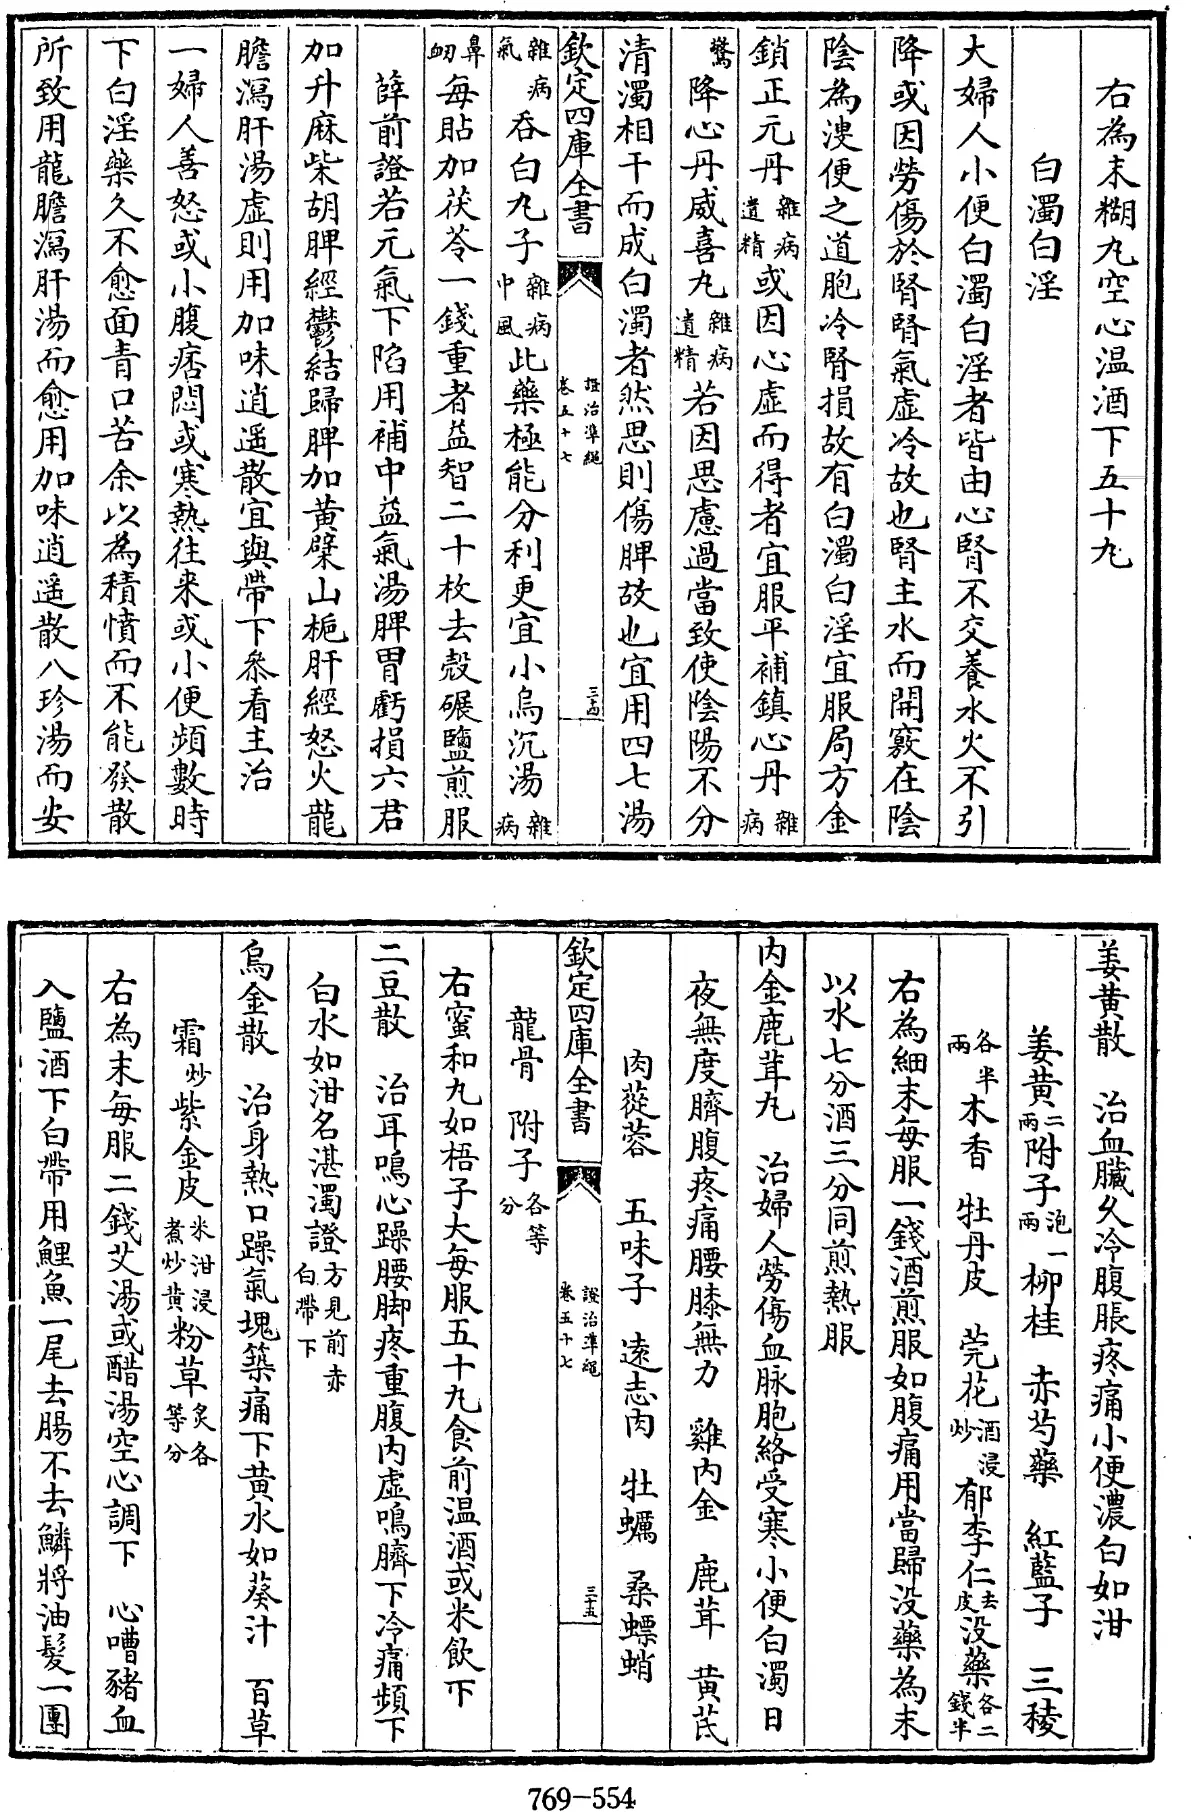 右為末糊丸空心温酒下五十丸
白濁白淫
大婦人小便白濁白淫者皆由心腎不交養水火不引
降或因勞傷於腎腎氣虚冷故也腎主水而開竅在陰
陰為溲便之道胞冷腎損故有白濁白淫宜服局方金
鎖正元丹雜病遺精或因心虚而得者宜服平補鎮心丹雜病
驚降心丹威喜丸雜病遺精若因思慮過當致使陰陽不分
清濁相干而成白濁者然思則傷脾故也宜用四七湯
欽定四庫全書 證治凖繩 卷五十七 三十四
雜病氣吞白丸子雜病中風此藥極能分利更宜小烏沉湯雜病
鼻衂每貼加茯苓一錢重者益智二十枚去殼碾鹽煎服
薛前證若元氣下陷用補中益氣湯脾胃虧損六君
加升麻柴胡脾經鬱結歸脾加黄蘗山梔肝經怒火龍
膽瀉肝湯虚則用加味逍遥散宜與帶下叅看主治
一婦人善怒或小腹痞悶或寒熱往来或小便頻數時
下白淫藥久不愈面青口苦余以為積憤而不能發散
所致用龍膽瀉肝湯而愈用加味逍遥散八珍湯而安
姜黄散 治血臟久冷腹脹疼痛小便濃白如泔
姜黄二兩附子泡一兩柳桂 赤芍藥 紅藍子 三稜
各半兩木香 牡丹皮 莞花酒浸炒郁李仁去皮没藥各二錢半
右為細末每服一錢酒煎服如腹痛用當歸没藥為末
以水七分酒三分同煎熱服
内金鹿茸丸 治婦人勞傷血脉胞絡受寒小便白濁日
夜無度臍腹疼痛腰膝無力 雞内金 鹿茸 黄芪
肉蓯蓉 五味子 遠志肉 牡蠣 桑螵蛸
欽定四庫全書 證治凖繩 卷五十七 三十五
龍骨 附子各等分
右蜜和丸如梧子大每服五十丸食前温酒或米飲下
二豆散 治耳鳴心躁腰脚疼重腹内虚鳴臍下冷痛頻下
白水如泔名湛濁證方見前赤白帶下
烏金散 治身熱口躁氣塊築痛下黄水如葵汁 百草
霜炒紫金皮米泔浸煮炒黄粉草炙各等分
右為末每服二錢艾湯或醋湯空心調下 心嘈豬血
入鹽酒下白帶用鯉魚一尾去腸不去鱗將油髮一團
769-554